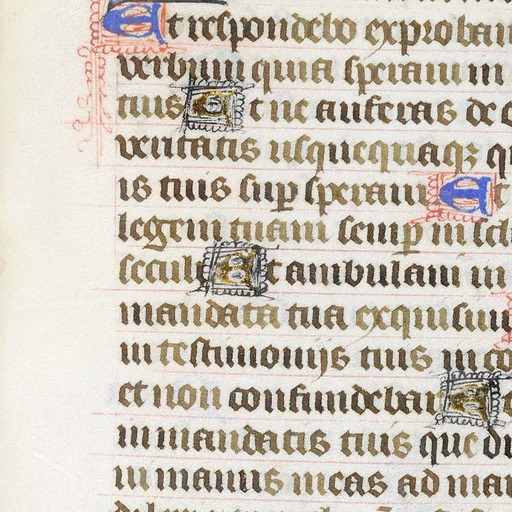 Et respondebo exproban
verbum quia speraui in
tuis Et ne auferas de o
veritatis usquequaqz qu
is tuis sup speraui Et
legem tuam semp in sclm
seculi Et ambulam in
mandata tua exquisiui
in testimonijs tuis in co
et non confundebar Et
in mandatis tuis que di
in manus meas ad man